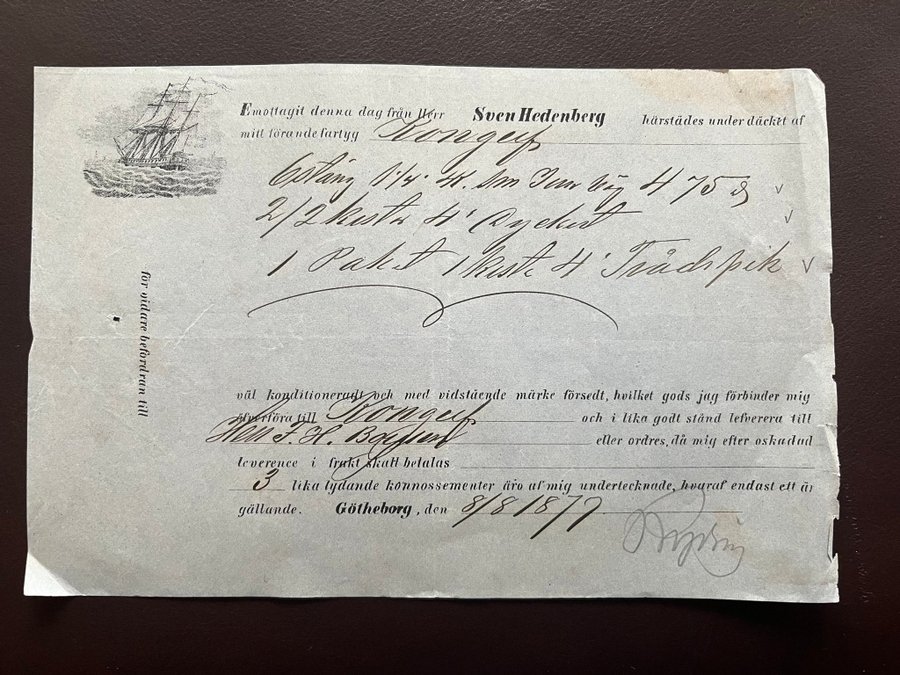 Emottagit denna dag från Herr Sven Hedenberg härstädes under däcket af
mitt förande fartyg Kongelf
475
2/2 4"
1 Paket 1 kista 4" Trådspik
för vidare befordran till
väl konditioneradt och med vidstående märke försedt, hvilket gods jag förbinder mig
öfverföra till Kongelf och i lika godt stånd lefverera till
Herr F. H. eller ordres, då mig efter oskadad
leverence i frakt skall betalas
3 lika lydande konnossementer äro af mig undertecknade, hvaraf endast ett är
gällande. Götheborg, den 8/8 1877